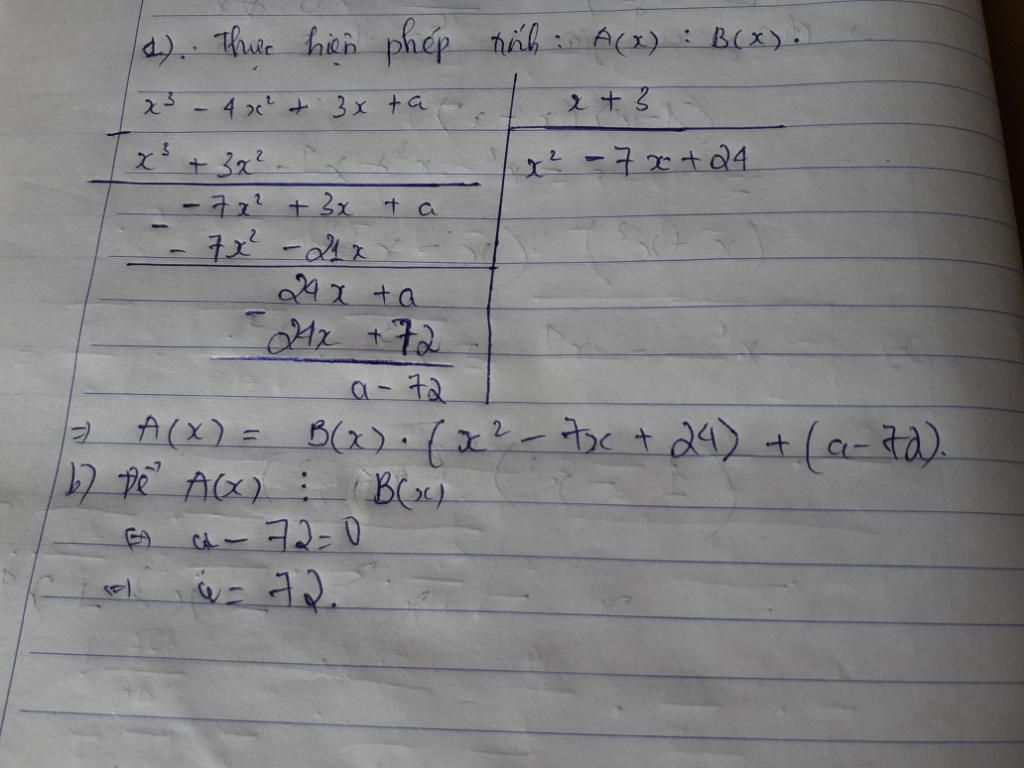 a). Thực hiện phép tính : A(x) : B(x).
x³ - 4x² + 3x + a
x + 3
x³ + 3x²
x² - 7x + 24
- 7x² + 3x + a
- - 7x² - 21x
24x + a
- 24x + 72
a - 72
⇒ A(x) = B(x) . (x² - 7x + 24) + (a - 72).
b) Để A(x) ⋮ B(x)
⇔ a - 72 = 0
⇔ a = 72.